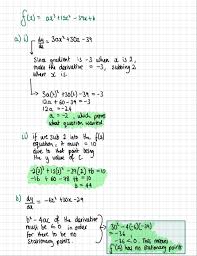 f(x) = ax³+15x²-39x+b
a) i) dy/dx = 3ax²+30x-39
Since gradient is -3 when x is 2,
make the derivative = -3, subbing 2
where x is
3a(2)²+30(2)-39 = -3
12a + 60 - 39 = -3
12a = -24
a = -2, which proves
what question wanted
ii) if we sub 2 into the f(x)
equation, it must = 10
due to that part being
the y value of
-2(2)³+15(2)²-39(2)+b = 10
-16 + 60 - 78 + b = 10
b = 44
b) dy/dx = -6x²+30x-39
b²-4ac of the derivative
must be < 0 in order
for there to be no
stationary points
30²-4(-6)(-39)
= -36
-36 < 0. This means
f(x) has no stationary points